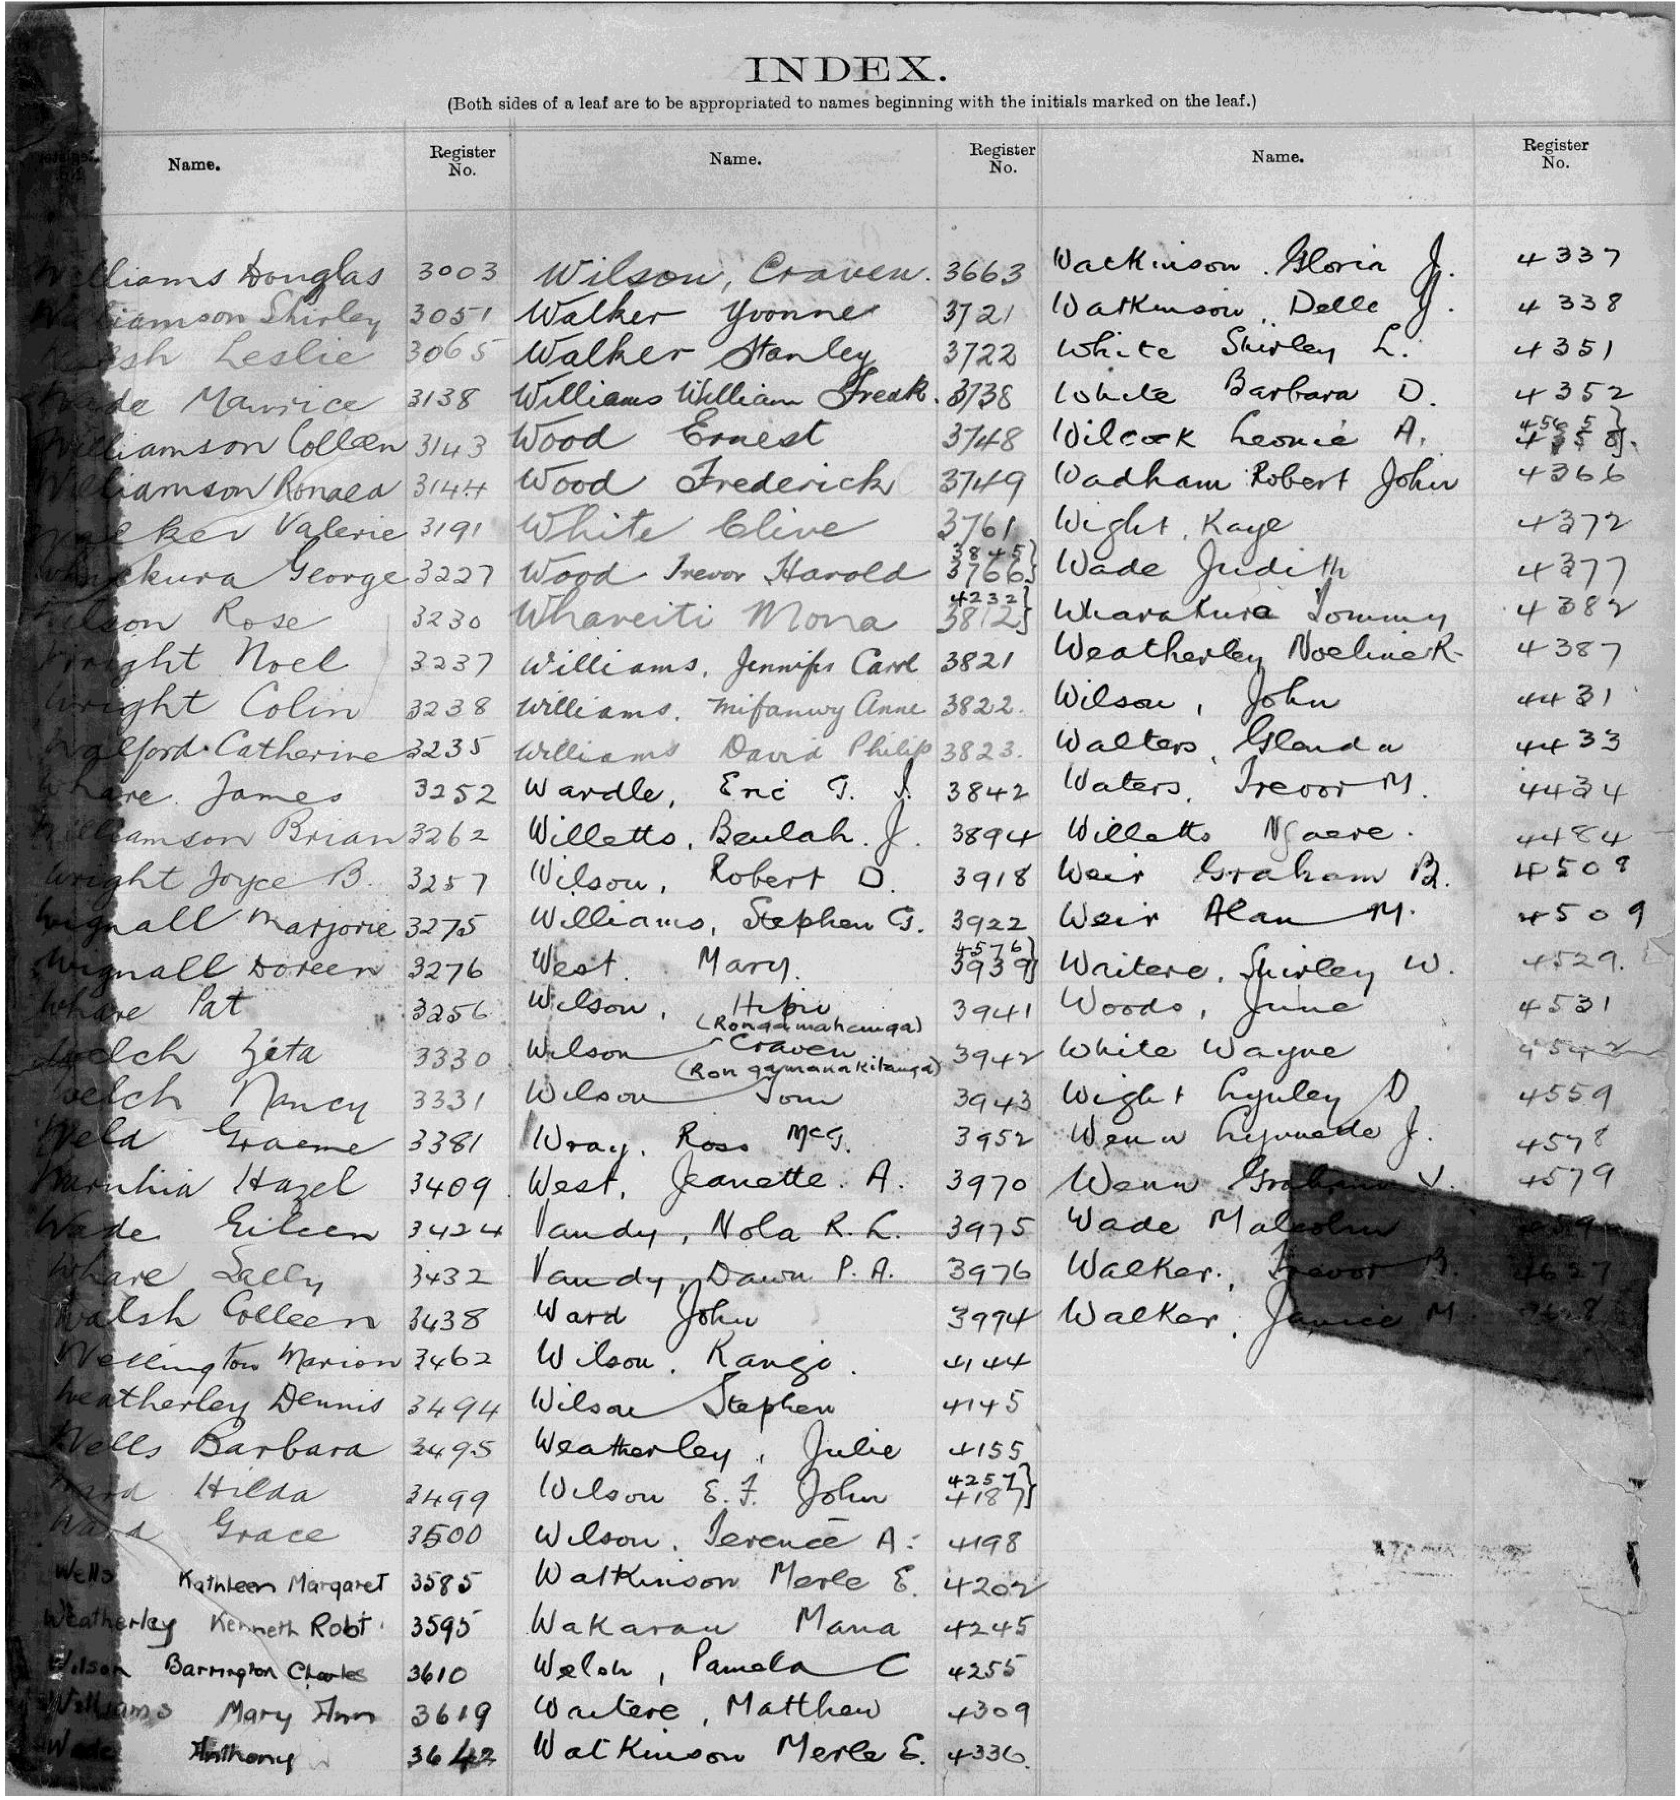 INDEX.
(Both sides of a leaf are to be appropriated to names beginning with the initials marked on the leaf.)
Name. Register No. Name. Register No. Name. Register No.
Williams Douglas 3003
Williamson Shirley 3051
Leslie 3065
Wade Maurice 3138
Williamson Colleen 3143
Williamson Ronald 3144
Walker Valerie 3191
George 3227
Wilson Rose 3230
Wright Noel 3237
Wright Colin 3238
Walford Catherine 3235
Whare James 3252
Williamson Brian 3262
Wright Joyce B. 3257
Wignall Marjorie 3275
Wignall Doreen 3276
Whare Pat 3256
Welch Zita 3330
Welch Nancy 3331
Weld Graeme 3381
Hazel 3409
Wade Eileen 3424
Whare Sally 3432
Walsh Colleen 3438
Wellington Marion 3462
Weatherley Dennis 3494
Wells Barbara 3495
Ward Hilda 3499
Ward Grace 3500
Wells Kathleen Margaret 3585
Weatherley Kenneth Robt. 3595
Wilson Barrington Charles 3610
Williams Mary Ann 3619
Wade Anthony 3642
Wilson, Craven. 3663
Walker Yvonne 3721
Walker Stanley 3722
Williams William Fredk. 3738
Wood Ernest 3748
Wood Frederick 3749
White Clive 3761
3845}
Wood Trevor Harold 3766}
4232}
Whareiti Mona 3812}
Williams, Jennifer Carol 3821
Williams. Mifanwy Anne 3822.
Williams David Philip 3823.
Wardle, Eric G. J. 3842
Willetts, Beulah. J. 3894
Wilson, Robert D. 3918
Williams, Stephen G. 3922
4576}
West. Mary. 3939}
Wilson, 3941
Wilson Craven 3942
(Rongamanakitanga)
Wilson Tom 3943
Wray, Ross McG. 3952
West, Jeanette. A. 3970
Vandy, Nola R. L. 3975
Vandy, Dawn P. A. 3976
Ward John 3994
Wilson. Rangi. 4144
Wilson Stephen 4145
Weatherley, Julie 4155
4257}
Wilson E. F. John 4187}
Wilson. Terence A. 4198
Watkinson Merle E. 4202
Wakarau Mana 4245
Welsh, Pamela C 4255
Waitere, Matthew 4309
Watkinson Merle E. 4336.
Watkinson. Gloria J. 4337
Watkinson, Delle J. 4338
White Shirley L. 4351
White Barbara D. 4352
Wilcock Leonie A.
Wadham Robert John 4366
Wight, Kaye 4372
Wade Judith 4377
Wharakura Tommy 4382
Weatherley Noeline R. 4387
Wilson, John 4431
Walters, Glenda 4433
Waters, Trevor M. 4434
Willetts Ngaere. 4484
Weir Graham B. 4508
Weir Alan M. 4509
Waitere, Shirley W. 4529.
Woods, June 4531
White Wayne 4542
Wight Lynley D 4559
Wenn Lynnette J. 4578
Wenn Graham V. 4579
Wade Malcolm
Walker, Trevor B. 4637
Walker, Janice M.